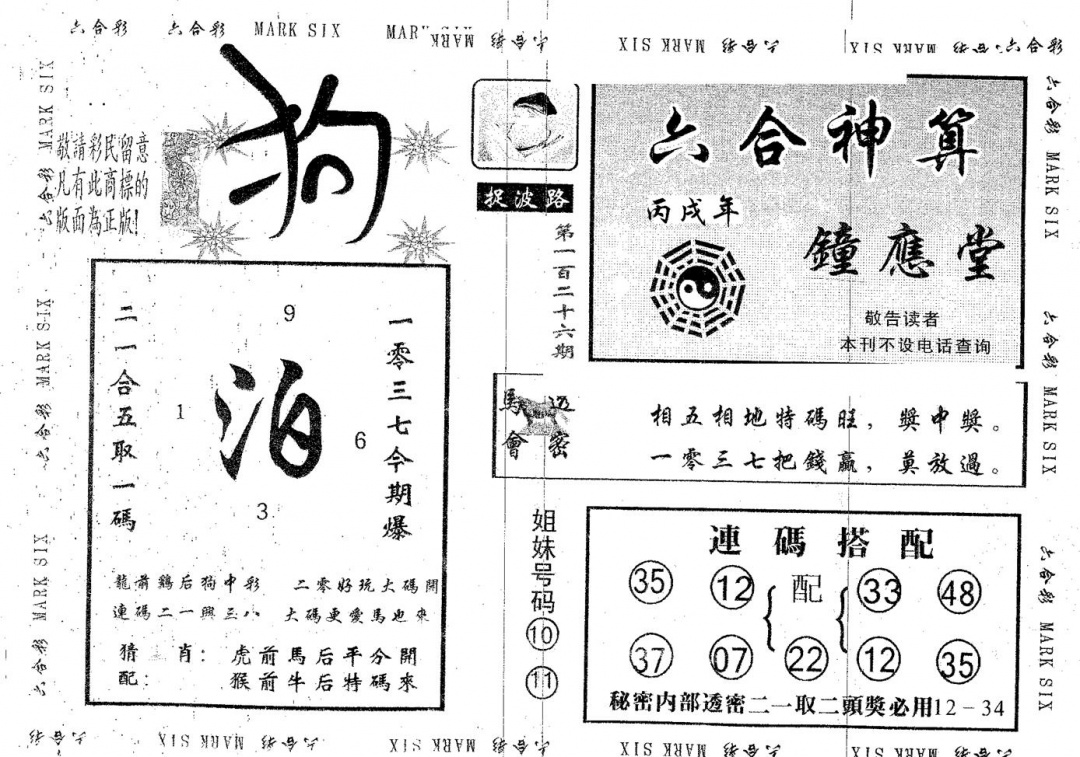 六合彩 六合彩 MARK SIX MARK SIX 六合彩
MARK SIX 六合彩 MARK SIX 六合彩 六合彩
六合彩 MARK SIX 六合彩 MARK SIX 六合彩 MARK SIX
敬請彩民留意
凡有此商標的
版面為正版!
狗
9
二一合五取一碼
泊
1
6
3
一零三七今期爆
龍前鷄后狗中彩 二零好玩大碼開
連碼二一興三八 大碼更愛馬也來
猜肖: 虎前馬后平分開
配: 猴前牛后特碼來
捉波路
第一百二十六期
六合神算
丙戌年
鐘應堂
敬告读者
本刊不设电话查询
馬會
透密
相五相地特碼旺,獎中獎。
一零三七把錢贏,莫放過。
姐妹号码
10
11
連碼搭配
35 12 配 33 48
37 07 22 12 35
秘密内部透密二一取二頭獎必用12-34
六合彩 MARK SIX 六合彩 MARK SIX 六合彩 MARK SIX
六合彩 MARK SIX 六合彩 MARK SIX 六合彩 MARK SIX 六合彩 MARK SIX 六合彩